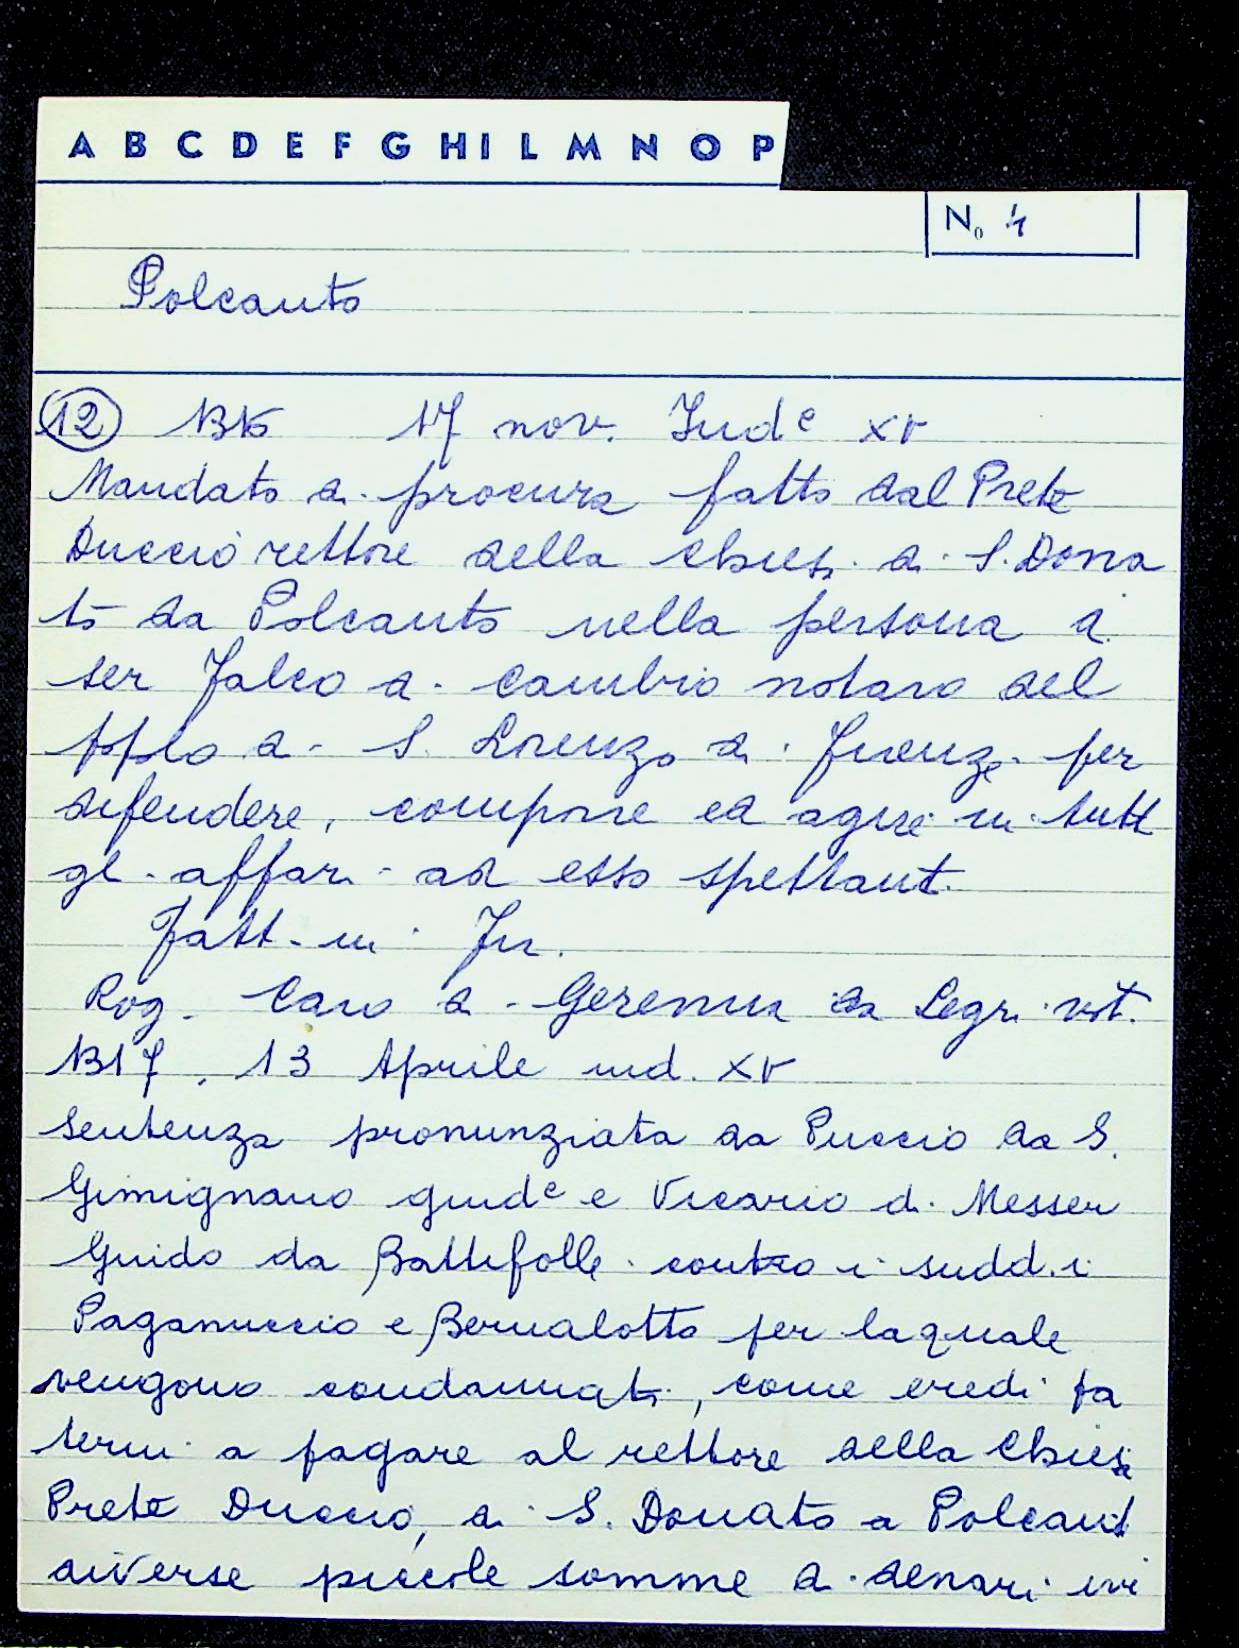 A B C D E F G H I L M N O P
No 4
Polcanto
(12) 1316 17 nov. Indᵉ XV
Mandato di procura fatto dal Prete
Duccio rettore della Chiesa di S. Dona
to da Polcanto nella persona di
ser Falco di Cambio notaro del
pplo di S. Lorenzo di Firenze per
difendere, comporre ed agire in tutti
gli affari ad esso spettanti
Fatt. in Fir.
Rog. Caro di Geremia da Legri not.
1317, 13 Aprile ind. XV
Sentenza pronunziata da Puccio da S.
Gimignano giudᵉ e Vicario di Messer
Guido da Battifolle contro i sudd.i
Paganuccio e Bernalotto per la quale
vengono condannati, come eredi pa
terni a pagare al rettore della Chiesa
Prete Duccio, di S. Donato a Polcanto
diverse piccole somme di denari ivi